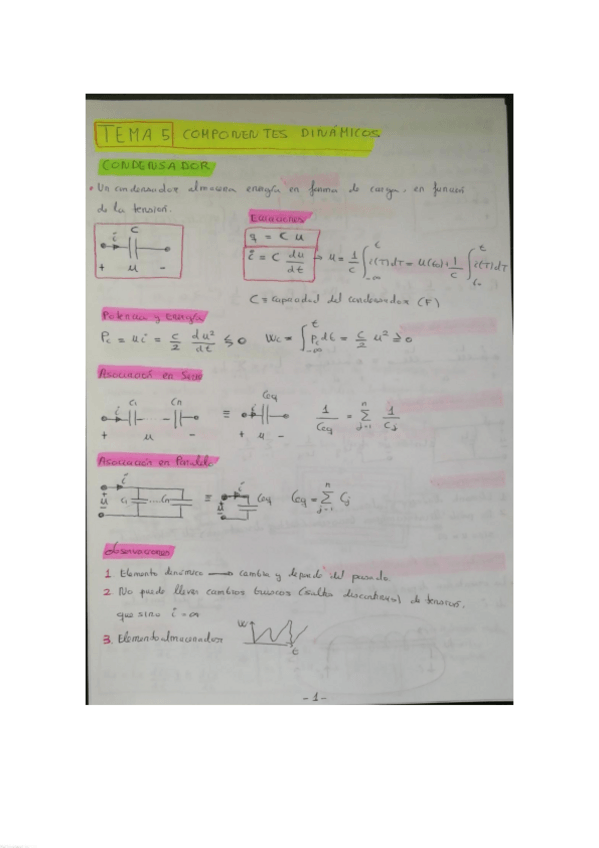 TEMA 5 COMPONENTES DINÁMICOS
CONDENSADOR
• Un condensador almacena energía en forma de carga, en función
de la tensión.
C
i
+ u -
Ecuaciones
q = C u
i = C du/dt → u = 1/C ∫_{-∞}^{t} i(T)dT = u(t₀)+1/C ∫_{t₀}^{t} i(T)dT
C ≡ capacidad del condensador (F)
Potencia y Energía
Pc = u i = C/2 du²/dt ≶ 0 Wc = ∫_{-∞}^{t} Pc dt = C/2 u² ≥ 0
Asociación en Serie
C₁ Cn ≡ Ceq
i i
+ u - + u -
1/Ceq = Σ_{j=1}^{n} 1/Cj
Asociación en Paralelo
i C₁ ....Cn ≡ i Ceq Ceq = Σ_{j=1}^{n} Cj
+ u - + u -
Observaciones
1. Elemento dinámico → cambia y depende del pasado
2. No puede llevar cambios bruscos (saltos discontinuos) de tensión,
que sino i = ∞
3. Elemento almacenador W t
- 1 -